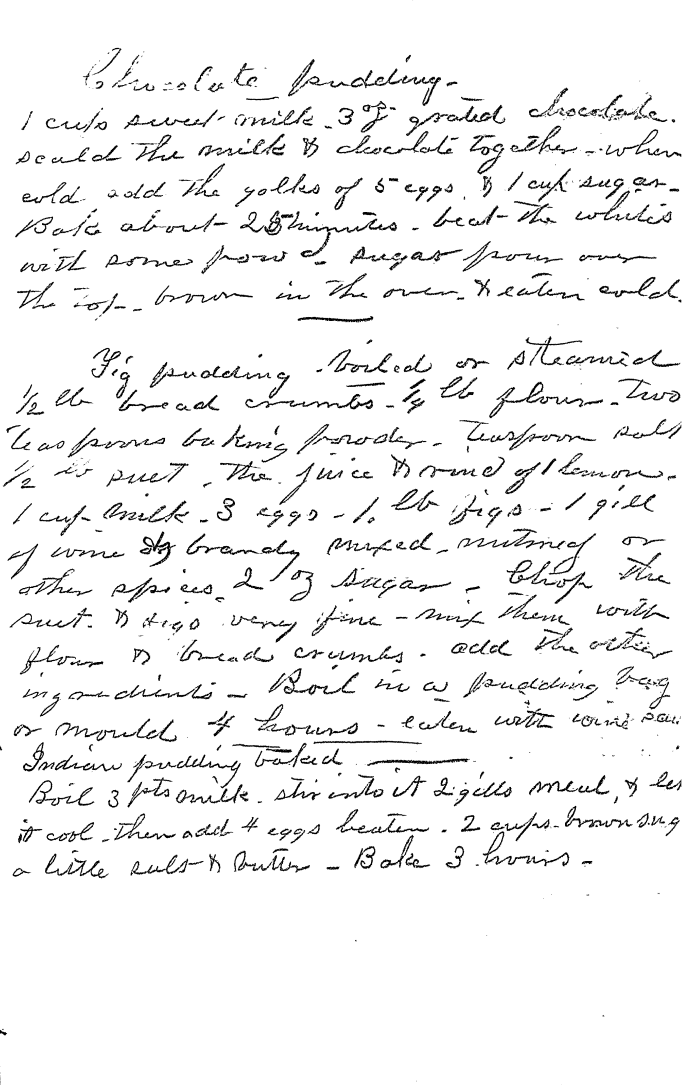 Chocolate pudding -
1 cups sweet milk - 3 oz grated chocolate.
scald the milk & chocolate together - when
cold add the yolks of 5 eggs & 1 cup sugar -
Bake about 25 minutes - beat the whites
with some powd sugar pour over
the top - brown in the oven - & eaten cold.
Fig pudding - boiled or steamed
1/2 lb bread crumbs - 1/4 lb flour - Two
teaspoons baking powder - teaspoon salt
1/2 lb suet, the juice & rind of 1 lemon -
1 cup milk - 3 eggs - 1 lb figs - 1 gill
of wine & brandy mixed - nutmeg or
other spices 2 oz sugar - Chop the
suet & figs very fine - mix them with
flour & bread crumbs - add the other
ingredients - Boil in a pudding bag
or mould 4 hours - eaten with wine sau
Indian pudding baked
Boil 3 pts milk - stir into it 2 gills meal, & let
it cool - then add 4 eggs beaten - 2 cups brown sug
a little salt & butter - Bake 3 hours -